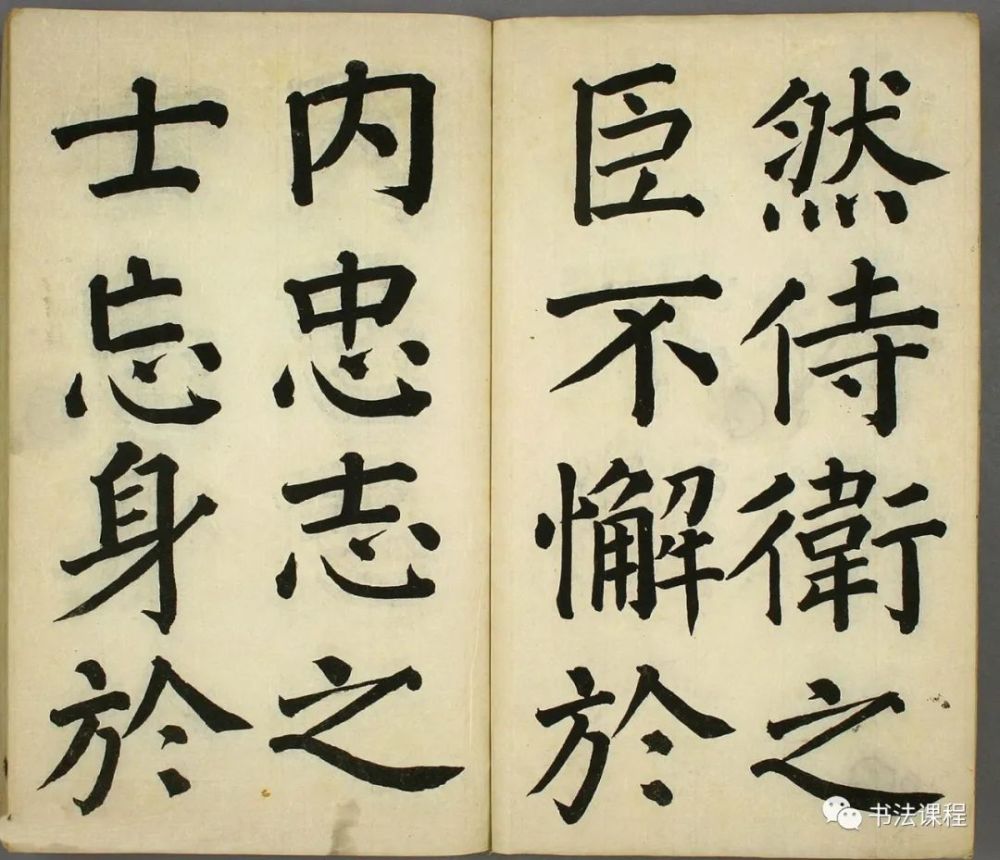 然侍衛之
臣不懈於
内忠志之
士忘身於
书法课程